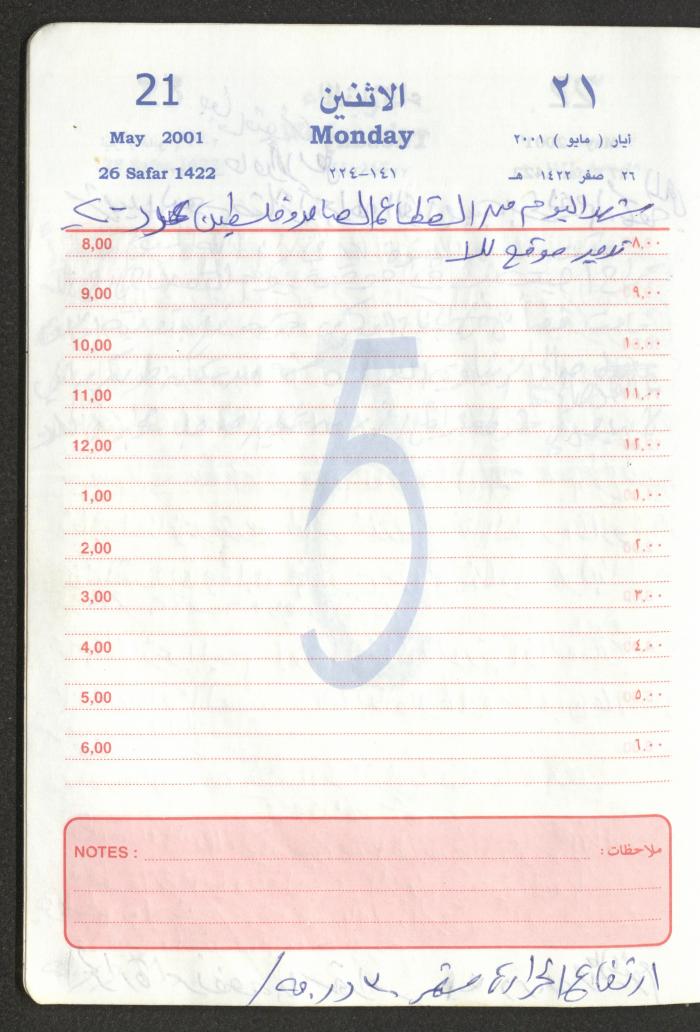 21 الاثنين ٢١
May 2001 Monday أيار ( مايو ) ٢٠٠١
26 Safar 1422 ١٤١-٢٢٤ ٢٦ صفر ١٤٢٢ هـ
شهد اليوم من القطاع الصامد وفلسطين
8,00 ٨,٠٠
تدمير موقع للا
9,00 ٩,٠٠
10,00 ١٠,٠٠
11,00 ١١,٠٠
12,00 ١٢,٠٠
1,00 ١,٠٠
2,00 ٢,٠٠
3,00 ٣,٠٠
4,00 ٤,٠٠
5,00 ٥,٠٠
6,00 ٦,٠٠
5
NOTES : ملاحظات :
ارتفاع الحرارة مستمر ٣٠ درجة